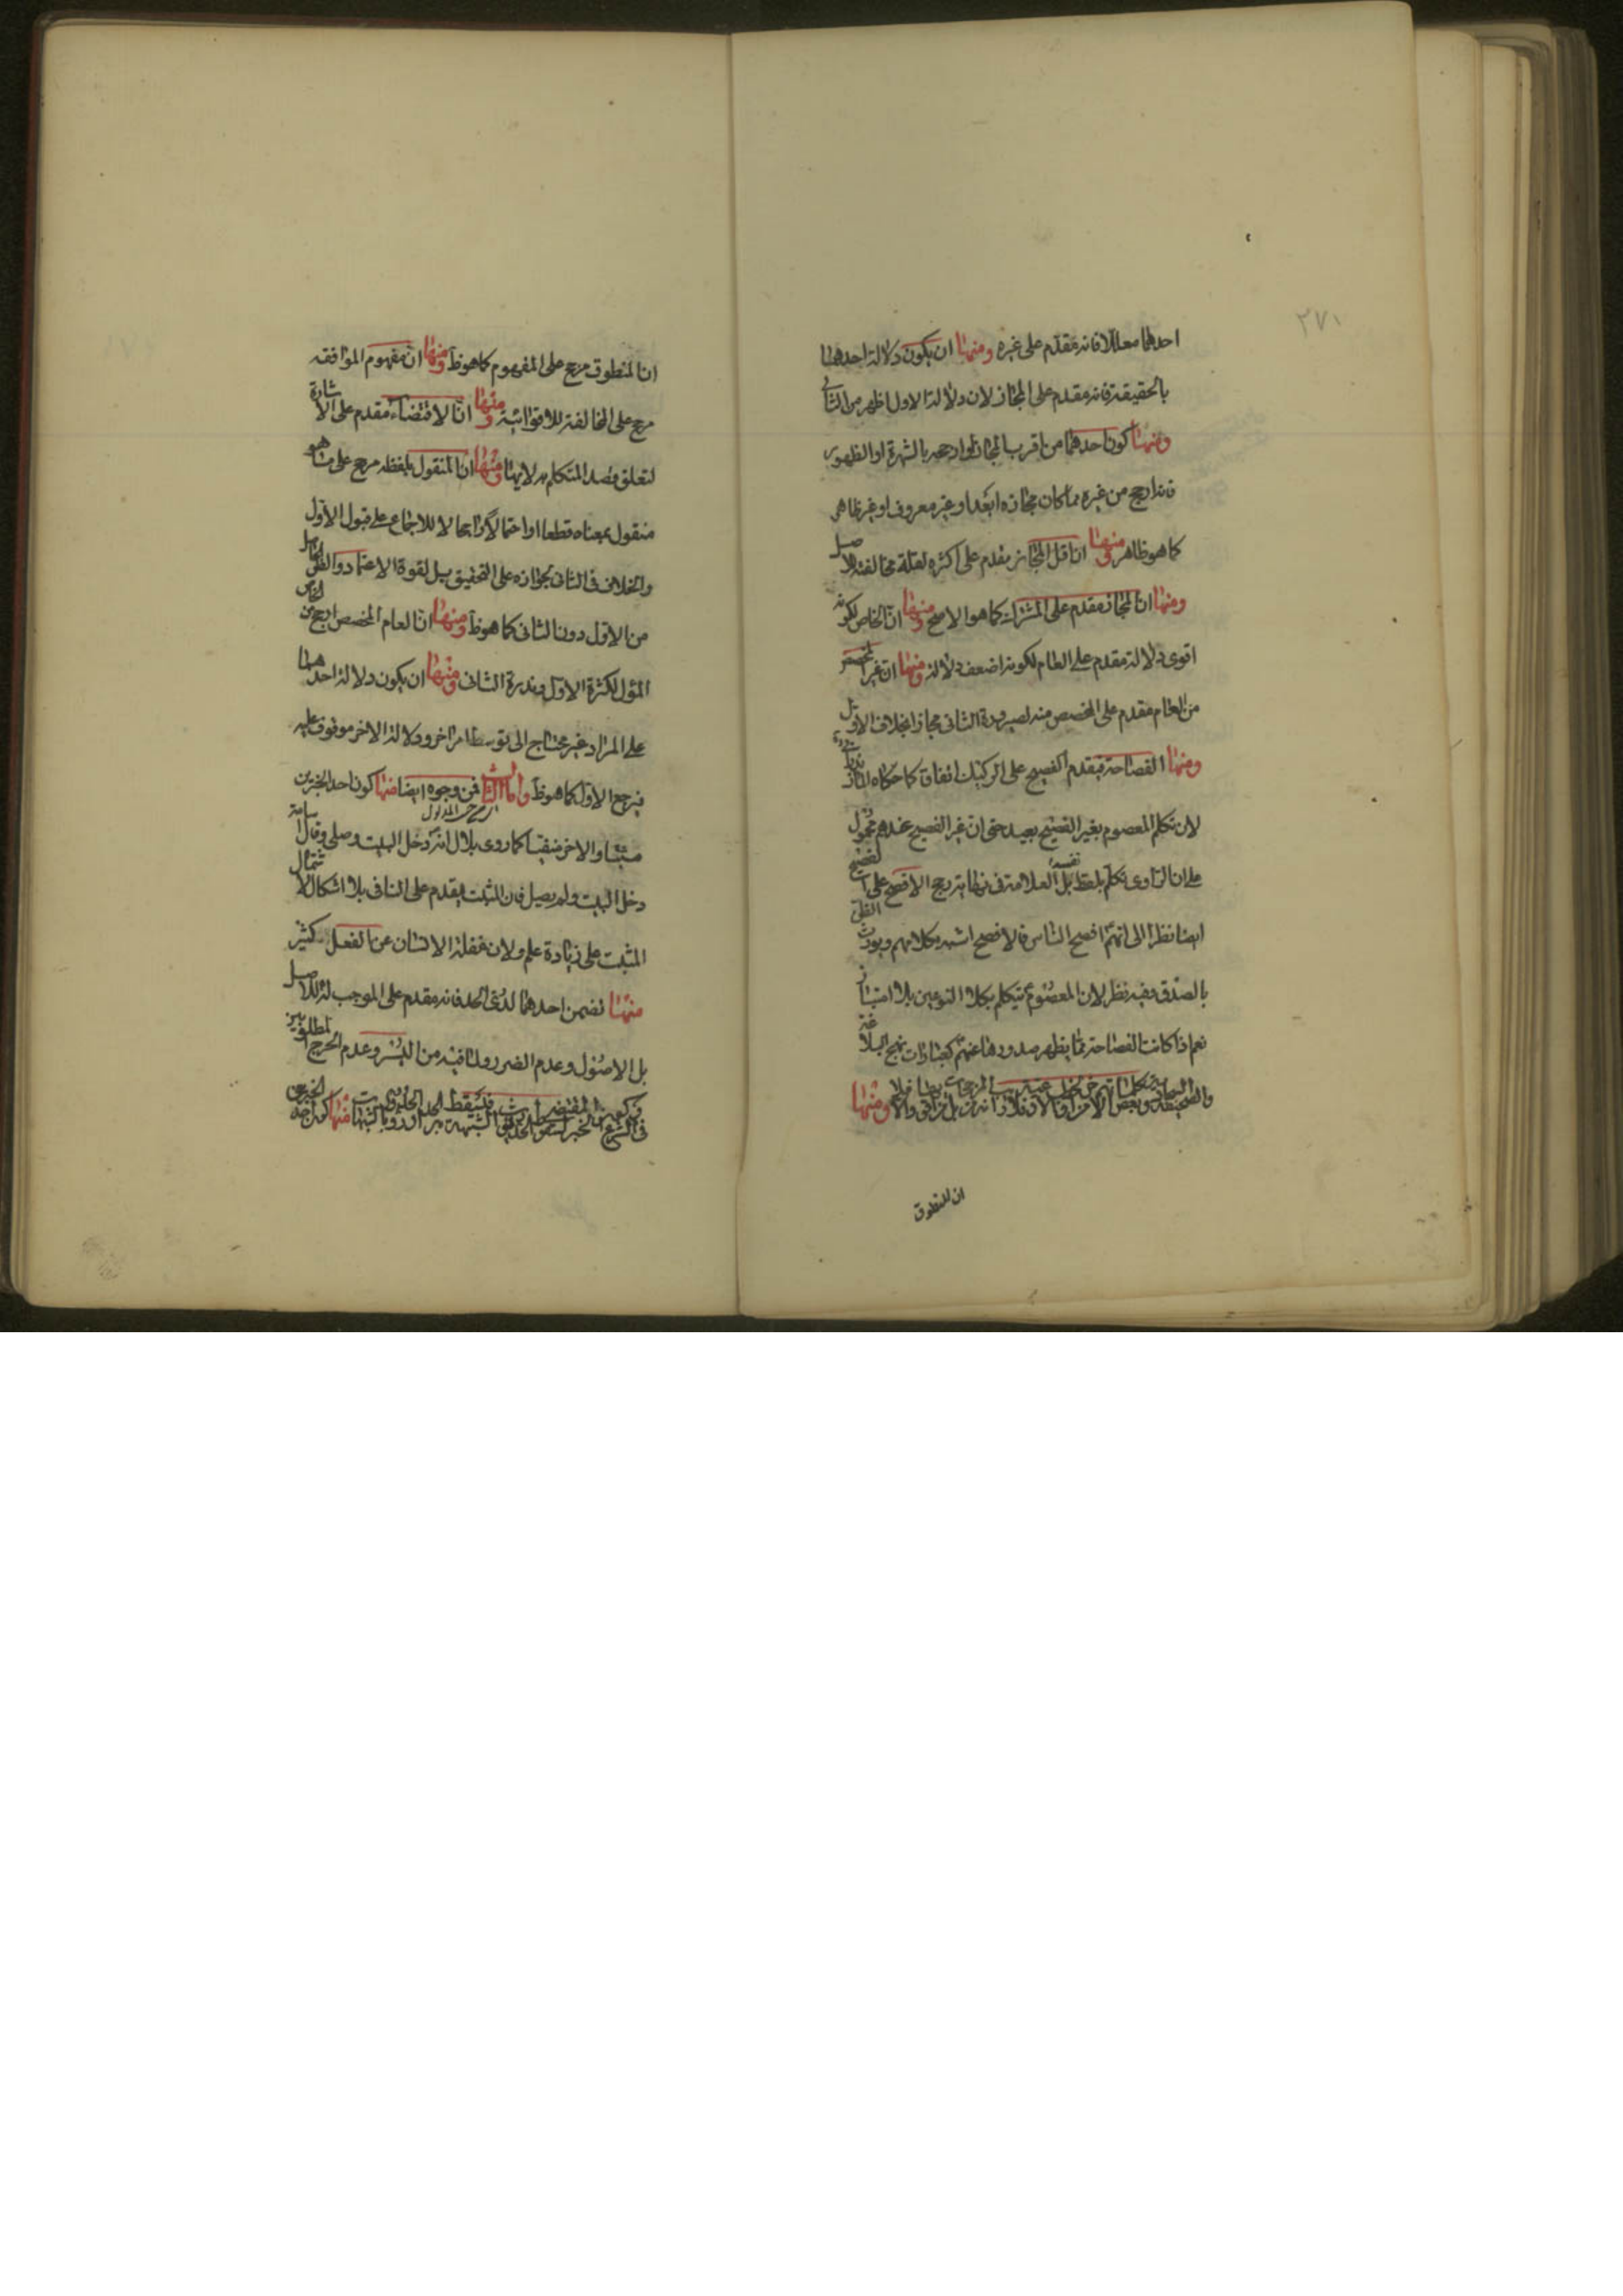 ٢٧١
احدهما معللا فانه مقدم على غيره ومنها ان يكون دلالة احدهما
بالحقيقة فانه مقدم على المجاز لان دلالة الاول اظهر من الثانى
ومنها كون احدهما من اقرب المجازات وارجحه بالشهرة او الظهور
فانه ارجح من غيره مما كان مجازه ابعد او غير معروف او غير ظاهر
كما هو ظاهر ومنها ان اقل المجاز مقدم على اكثره لقلة مخالفته الاصل
ومنها ان المجاز مقدم على المشترك كما هو الاصح ومنها ان الخاص لكونه
اقوى دلالة مقدم على العام لكونه اضعف دلالة ومنها ان غير المخصص
من العام مقدم على المخصص منه لصيرورة الثانى مجازا بخلاف الاول
ومنها الفصاحة فيقدم الفصيح على الركيك اتفاقا كما حكاه
لان تكلم المعصوم بغير الفصيح بعيد حتى ان غير الفصيح عندهم
على ان الراوى تكلم بلفظ نفسه بل العلامة فى نهايته رجح الافصح على الفصيح
ايضا نظرا الى انهم افصح الناس فالافصح اشبه بكلامهم ويورث الظن
بالصدق وفيه نظر لان المعصوم يتكلم بكلا النوعين بلا امتياز
نعم اذا كانت الفصاحة مما يظهر صدورها عنهم كعبارات نهج البلاغة
والصحيفة السجادية وبعض ومنها
ان المنطوق
ان المنطوق مرجح على المفهوم كما هو ظ ومنها ان مفهوم الموافقة
مرجح على المخالفة للاقوائية ومنها ان الاقتضاء مقدم على الاشارة
لتعلق قصد المتكلم به لا بها ومنها ان المنقول بلفظه مرجح على ما هو
منقول بمعناه قطعا او احتمالا راجحا لا للاجماع على قبول الاول
والخلاف فى الثانى لجوازه على التحقيق بل لقوة الاعتماد والظن الحاصل
من الاول دون الثانى كما هو ظ ومنها ان العام المخصص ارجح من الخاص
المؤل لكثرة الاول وندرة الثانى ومنها ان يكون دلالة احدهما
على المراد غير محتاج الى توسط امر اخر ودلالة الاخر موقوف عليه
فيرجح الاول كما هو ظ واما الثالث فمن وجوه ايضا منها كون احد الخبرين
مثبتا والاخر منفيا كما روى بلال انه دخل البيت وصلى وقال اسامة
دخل البيت ولم يصل فان المثبت يقدم على النافى بلا اشكال لاشتمال
المثبت على زيادة علم ولان غفلة الانسان عن الفعل كثير
منها تضمن احدهما لدفع الحد فانه مقدم على الموجب له للاصل
بل الاصول وعدم الضرر ولما فيه من اليسر وعدم الحرج المطلوبين
فى الشرع